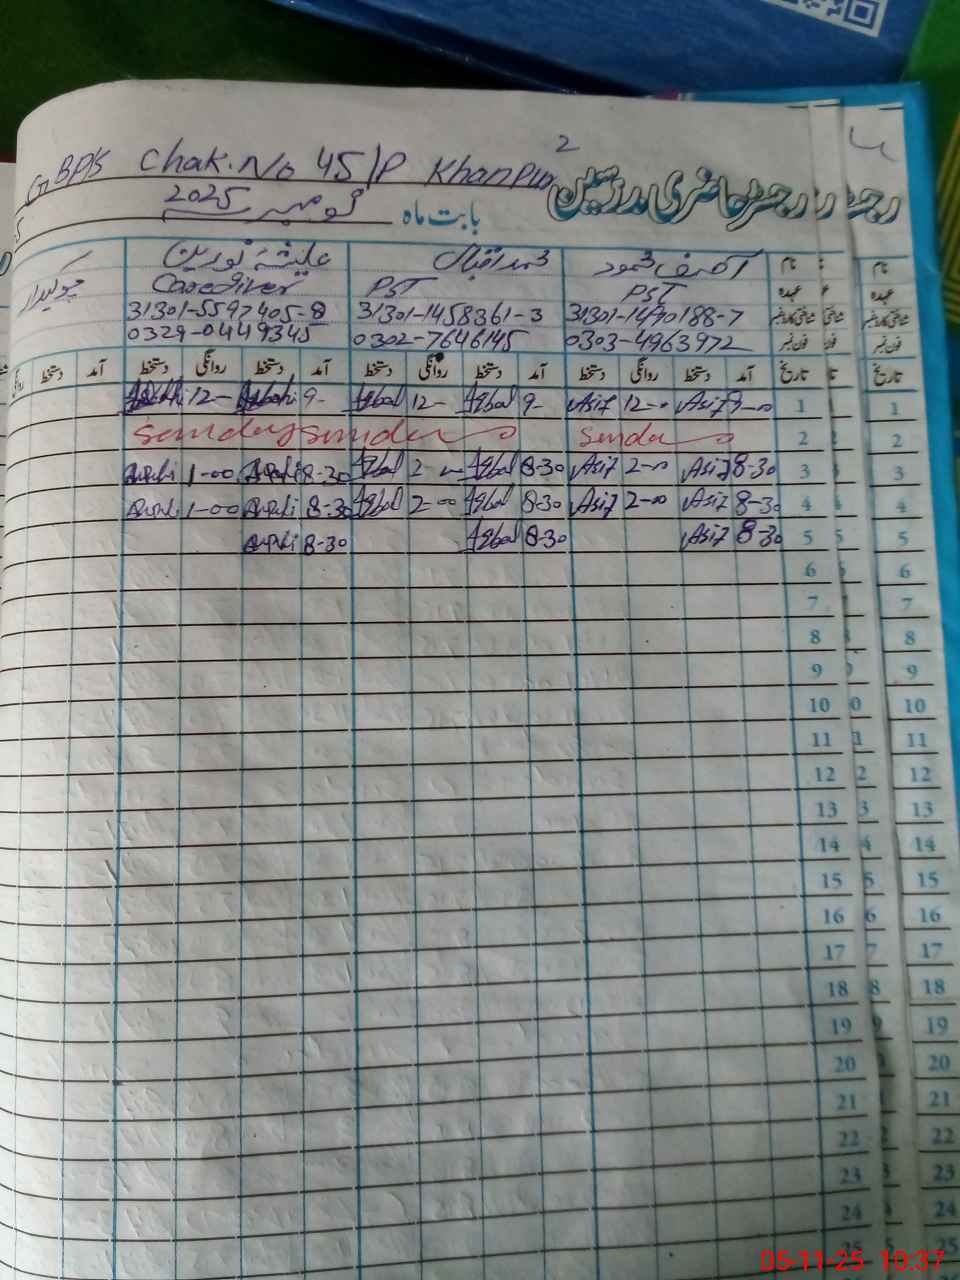 2
GBPS Chak.No 45/P Khanpur رجسٹر حاضری مدرسین
بابت ماہ نومبر 2025
نام آصف محمود محمد اقبال عائشہ نورین چوکیدار
عہدہ PST PST Caregiver
شناختی کارڈ نمبر 31301-1490188-7 31301-1458361-3 31301-5597405-8
فون نمبر 0303-4963972 0302-7646145 0329-0449345
تاریخ آمد دستخط روانگی دستخط آمد دستخط روانگی دستخط آمد دستخط روانگی دستخط آمد دستخط
1 9-00 Asif 12-00 Asif 9- Iqbal 12- Iqbal 9- 12-
2 Sunday Sunday Sunday
3 8-30 Asif 2-00 Asif 8-30 Iqbal 2-00 Iqbal 8-30 1-00
4 8-30 Asif 2-00 Asif 8-30 Iqbal 2-00 Iqbal 8-30 1-00
5 8-30 Asif 8-30 Iqbal 8-30
6
7
8
9
10
11
12
13
14
15
16
17
18
19
20
21
22
23
24
25
نام
عہدہ
شناختی کارڈ نمبر
فون نمبر
تاریخ
1
2
3
4
5
6
7
8
9
10
11
12
13
14
15
16
17
18
19
20
21
22
23
24
25
05-11-25 10:37